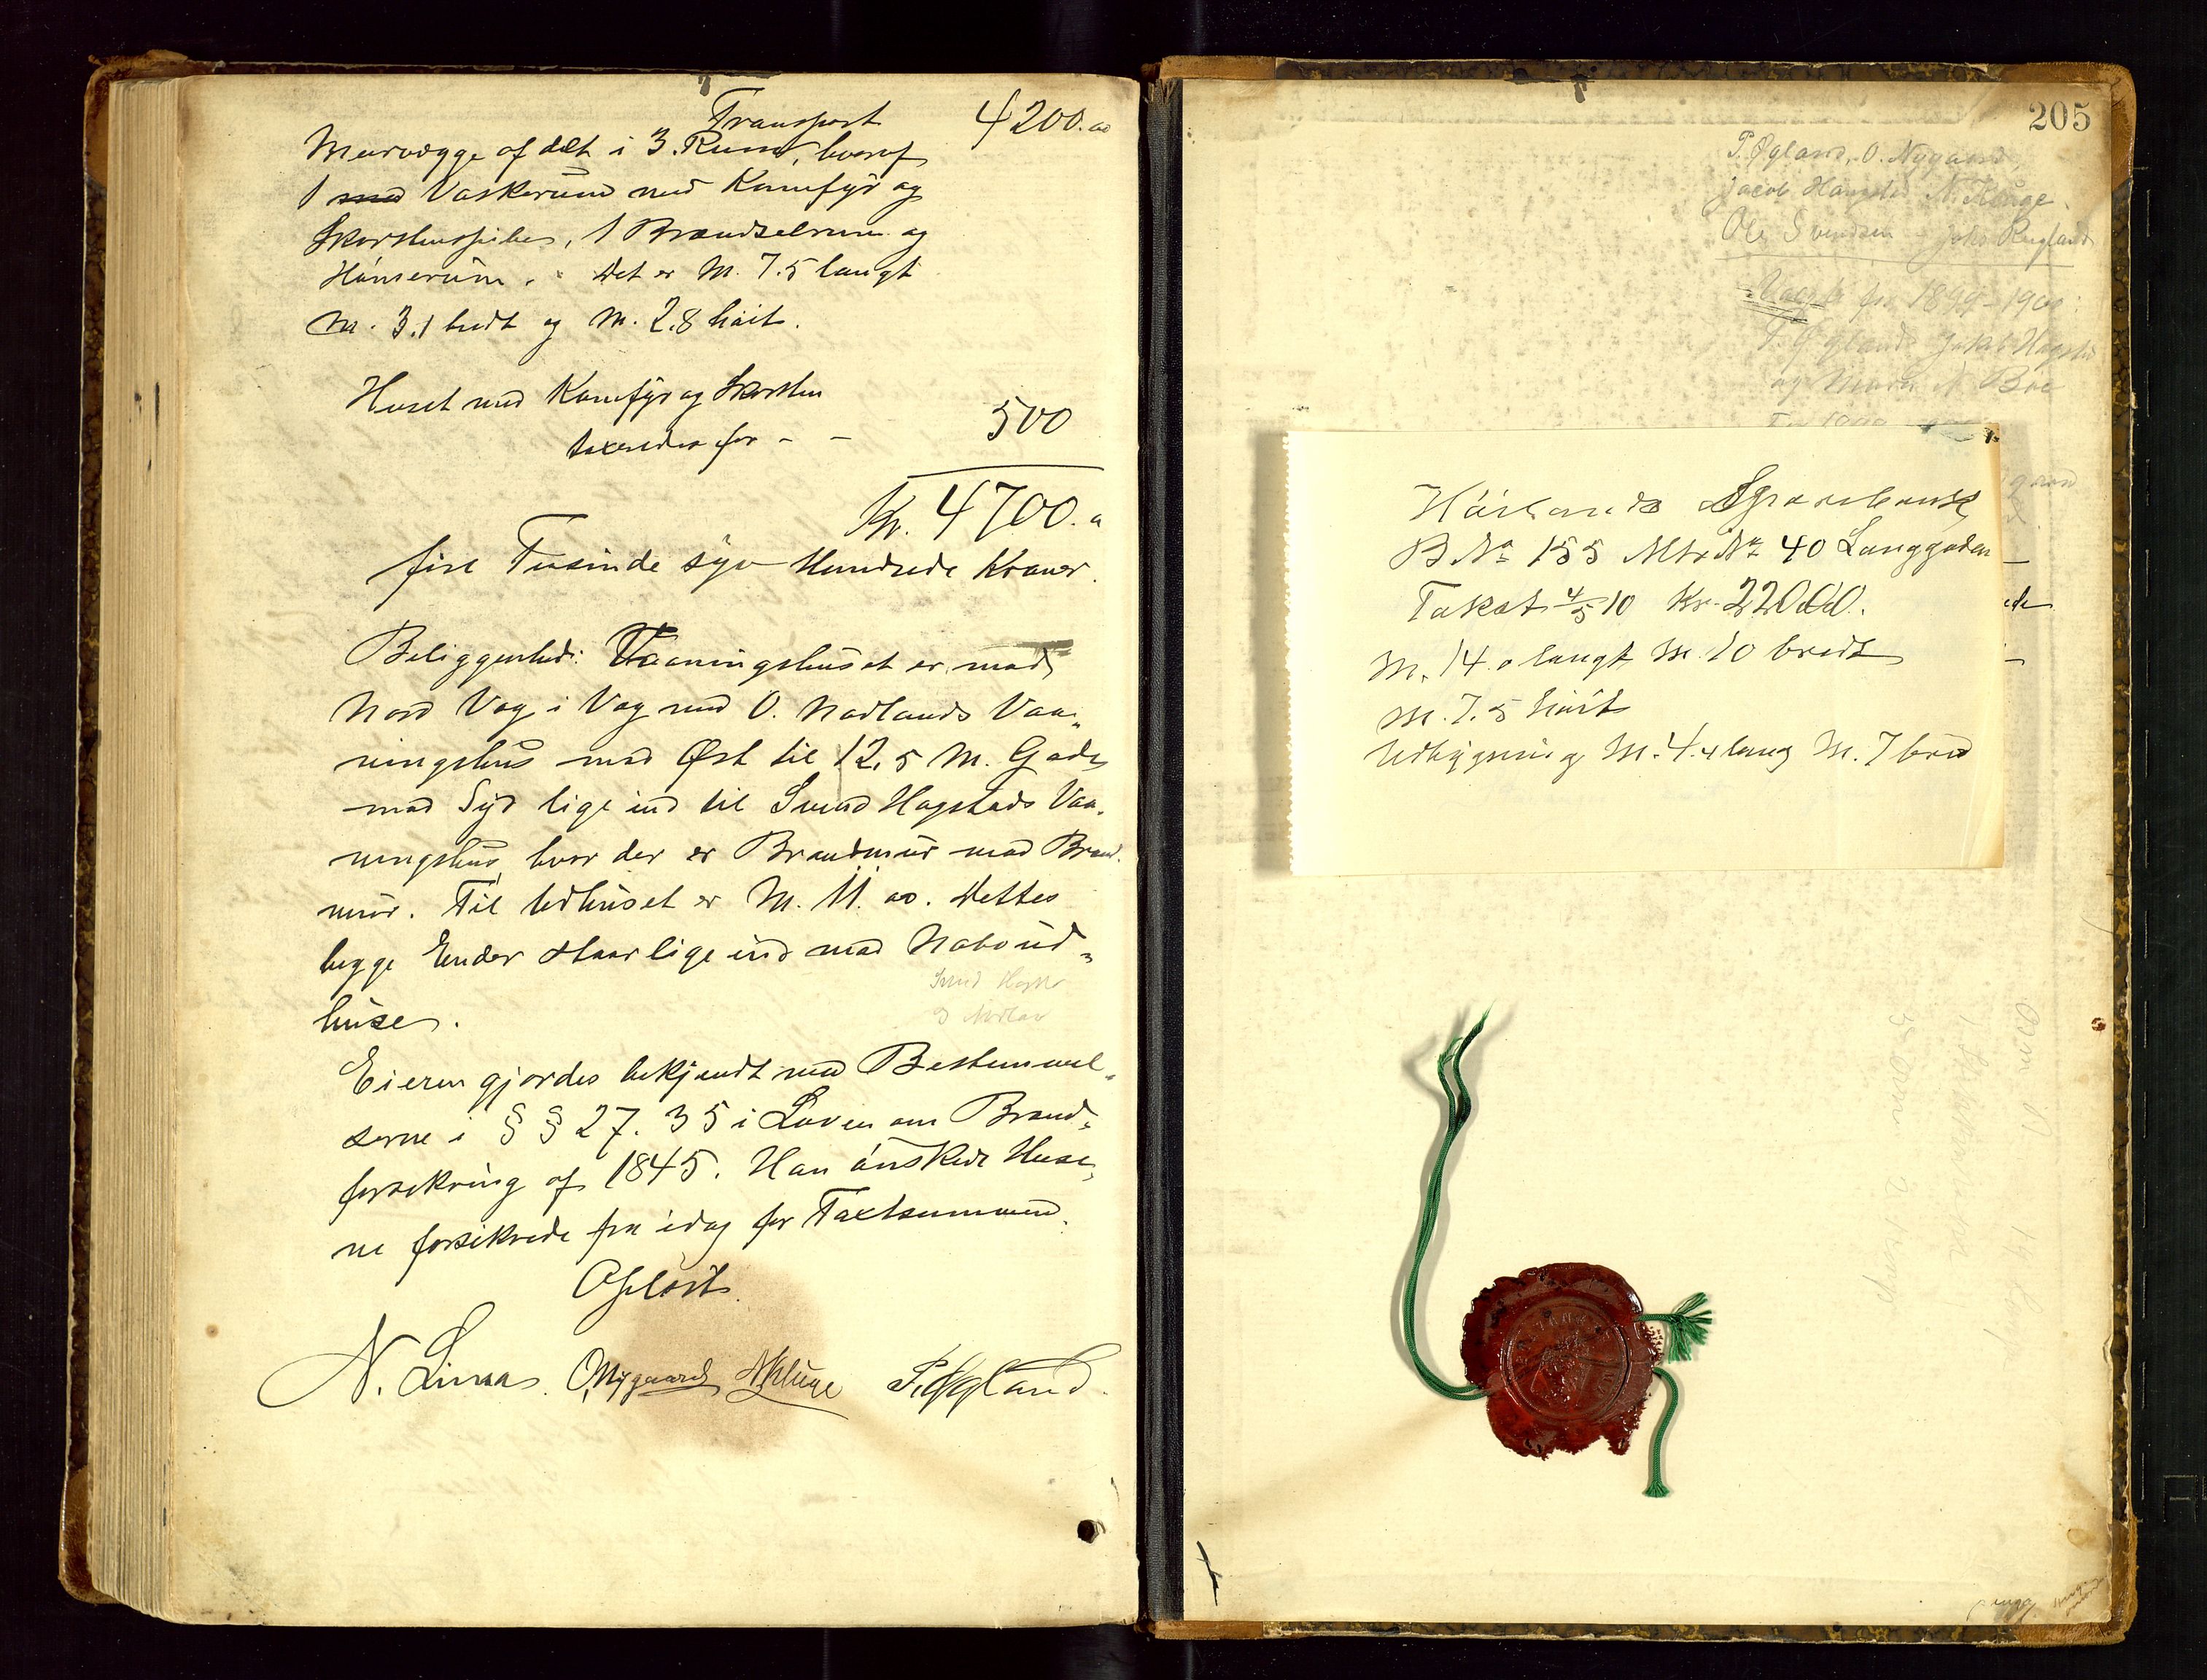 Transport 4200.00
Murvægge afdelt i 3. Rum, hvoraf
1 med Vaskerum med Komfyr og
Skorstenspibe, 1 Brændselrum og
Hönserum. Det er M. 7.5 langt
M. 3.1 bredt og M. 2.8 høit.
Huset med Komfyr og Skorsten
taxeredes for - - 500
Kr. 4700.00
fire Tusinde syv Hundrede Kroner.
Beliggenhed: Vaaningshuset er mod
Nord Væg i Væg med O. Nødlands Vaa-
ningshus mod Øst til 12,5 M. Gade
mod Syd lige ind til Svend Hagstads Vaa-
ningshus, hvor der er Brandmur mod Brand-
mur. Til Udhuset er M. 11.00. Dettes
begge Ender staar lige ind mod Naboud-
huse.
Eieren gjordes bekjendt med Bestemmel-
serne i § § 27. 35 i Loven om Brand-
forsikring af 1845. Han ønskede Huse-
ne forsikrede fra idag for Taxtsummen.
Oplæst.
N. Limaas. O. Nygaard N. Kluge P. Øgland.
205
P. Øgland, O. Nygaard,
Jacob Hagstad N. Kluge.
Ole Svendsen Johs Rugland
Valgte for 1899-1900:
P. Øgland Jakob Hagstad
og N. Boe
Hálands Sparebank
B. No 155 Mtr. Nr 40 Langgaden
Takst 4/5 10 Kr. 22000.
M. 14.0 langt M. 10 bredt
M. 7.5 høit
Udbygning M. 4.4 lang M. 7 bred